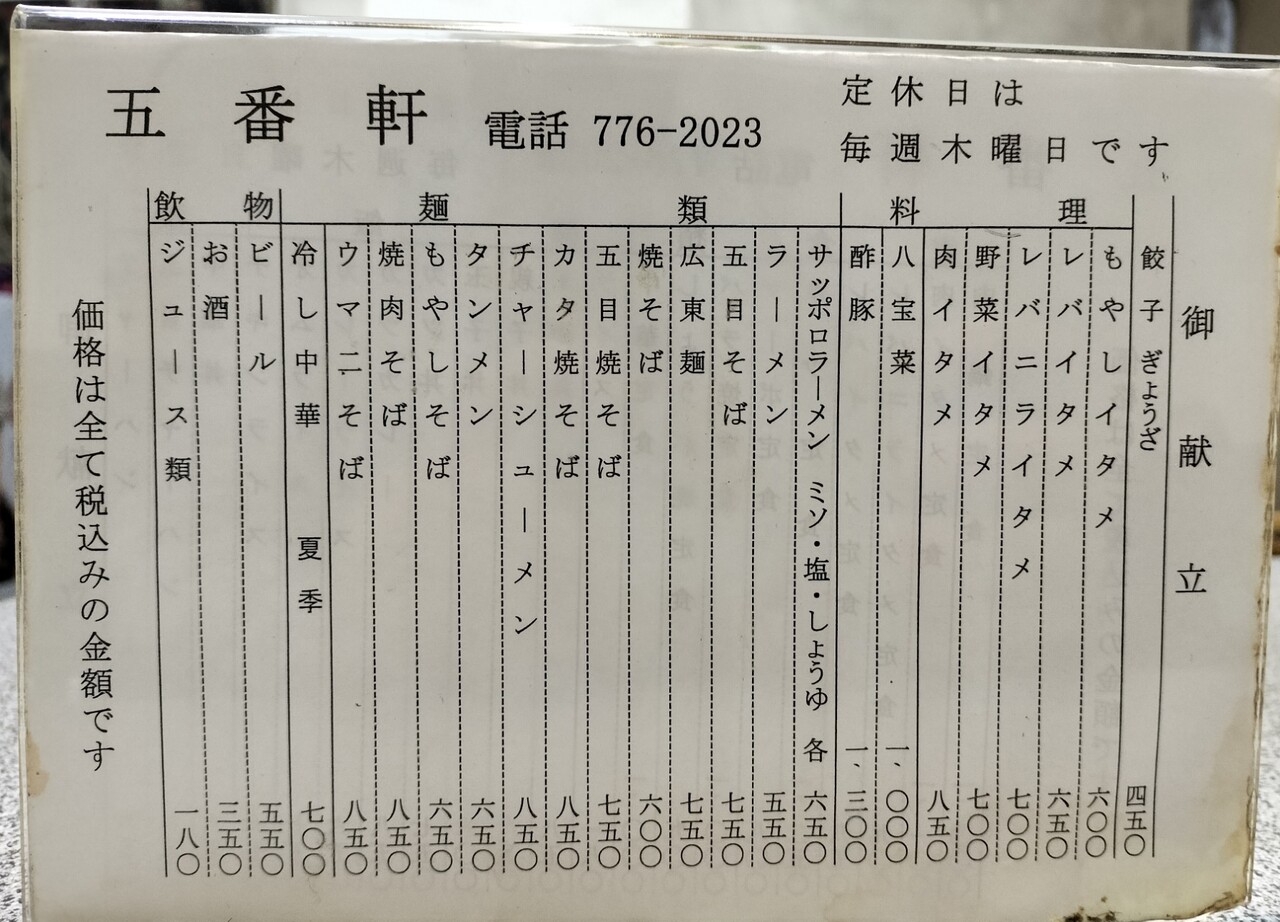 五番軒 電話 776-2023
定休日は
毎週木曜日です
御献立
餃子 ぎょうざ 四五〇
料理
もやしイタメ 六〇〇
レバイタメ 六五〇
レバニライタメ 七〇〇
野菜イタメ 七〇〇
肉イタメ 八五〇
八宝菜 一、〇〇〇
酢豚 一、三〇〇
麺類
サッポロラーメン ミソ・塩・しょうゆ 各 六五〇
ラーメン 五五〇
五目そば 七五〇
広東麺 七五〇
焼そば 六〇〇
五目焼そば 七五〇
カタ焼そば 八五〇
チャーシューメン 八五〇
タンメン 六五〇
もやしそば 六五〇
焼肉そば 八五〇
ウマ二そば 八五〇
冷し中華 夏季 七〇〇
飲物
ビール 五五〇
お酒 三五〇
ジュース類 一八〇
価格は全て税込みの金額です